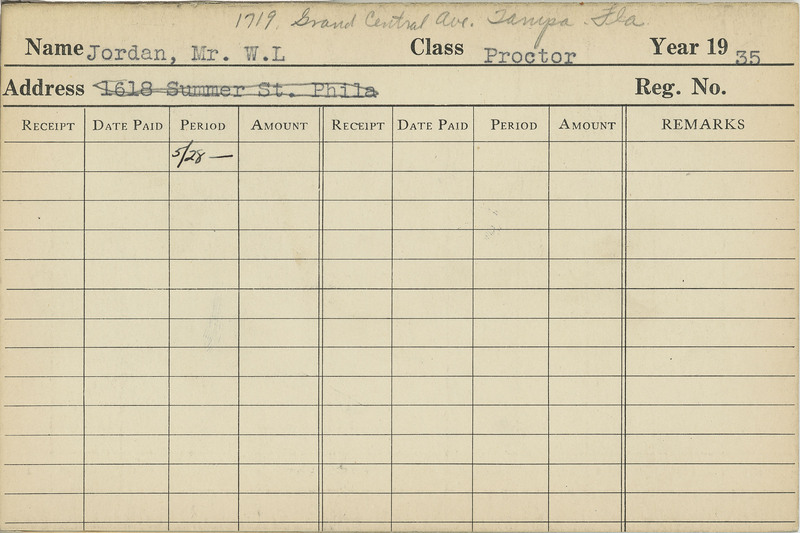 1719. Grand Central Ave. Tampa Fla.
Name Jordan, Mr. W.L Class Proctor Year 19 35
Address 1618 Summer St. Phila Reg. No.
RECEIPT DATE PAID PERIOD AMOUNT RECEIPT DATE PAID PERIOD AMOUNT REMARKS
5/28 —